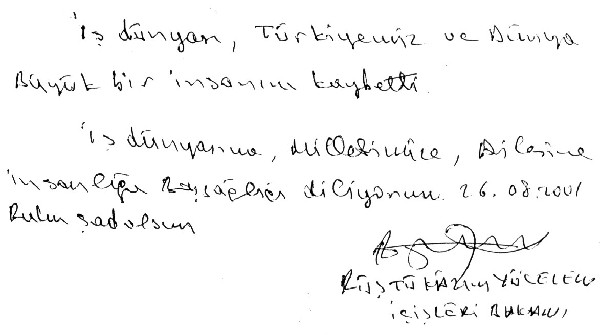 İş dünyası, Türkiyemiz ve Dünya
Büyük bir insanını kaybetti.
İş dünyasına, Milletimize, Ailesine
insanlığa Başsağlığı diliyorum. 26.08.2001
Ruhu şadolsun
RÜŞTÜ KAZIM YÜCELEN
İÇİŞLERİ BAKANI